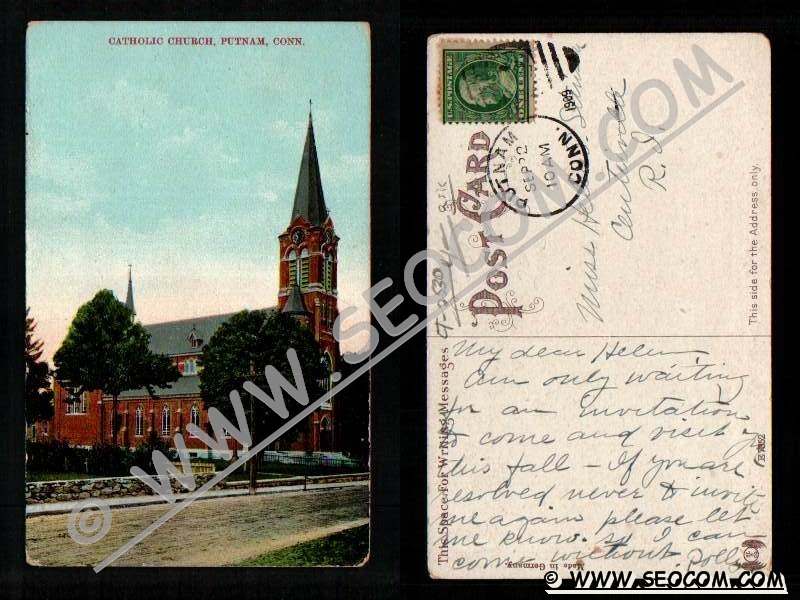 CATHOLIC CHURCH, PUTNAM, CONN.
© WWW.SEOCOM.COM
U.S. POSTAGE
ONE CENT
PUTNAM
SEP 22
10 AM
1909
CONN.
POST CARD
This side for the Address only.
Miss Helen
Centerdale
R. I.
This Space for Writing Messages
My dear Helen
Am only waiting
for an invitation
to come and visit you
this fall - If you are
resolved never to invite
me again please let
me know so I can
come without. Polly
Made in Germany.
© WWW.SEOCOM.COM
© WWW.SEOCOM.COM